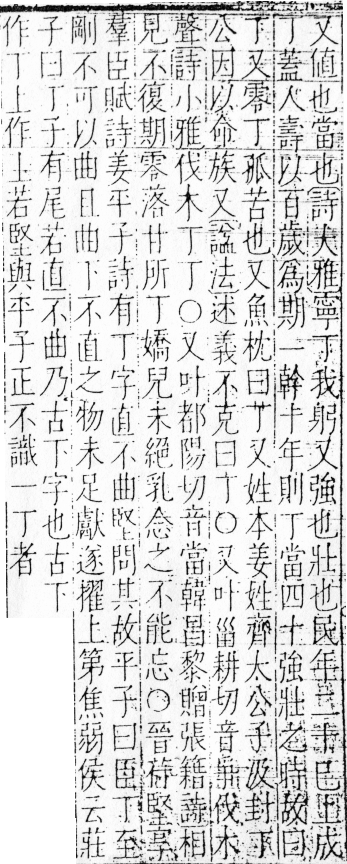 又值也當也詩大雅寧丁我躬又強也壯也民年二十已上成
丁蓋人壽以百歲為期一幹十年則丁當四十強壯之時故曰
丁又零丁孤苦也又魚枕曰丁又姓本姜姓齊太公子汲封丁
公因以命族又諡法述義不克曰丁○又叶甾耕切音爭伐木
聲詩小雅伐木丁丁○又叶都陽切音當韓昌黎贈張籍詩相
見不復期零落甘所丁嬌兒未絕乳念之不能忘○晉苻堅宴
羣臣賦詩姜平子詩有丁字直不曲堅問其故平子曰臣丁至
剛不可以曲且曲丁不直之物未足獻遂擢上第焦弱侯云莊
子曰丁子有尾若直不曲乃古下字也古下
作丅上作丄若堅與平子正不識一丁者